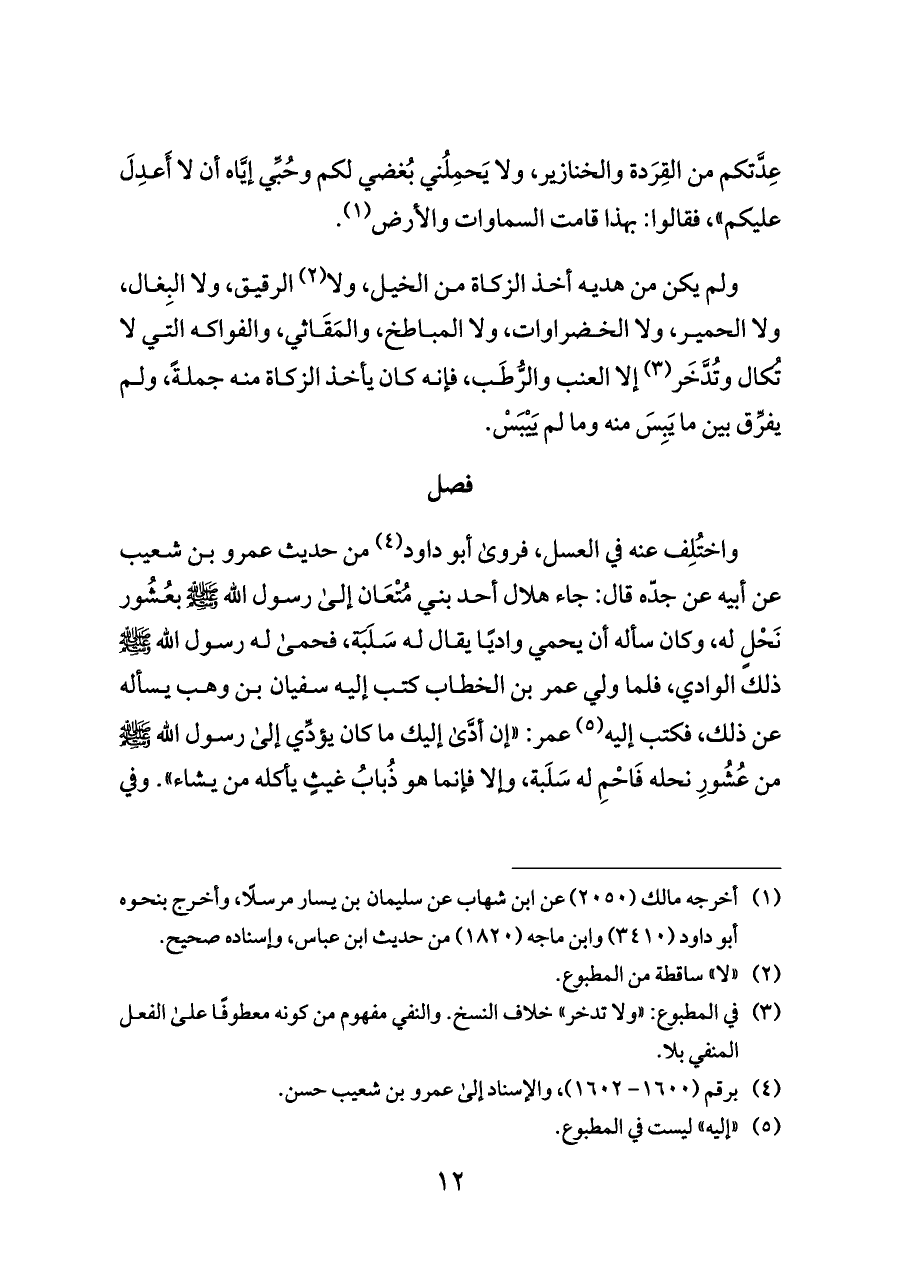 عِدَّتكم من القِرَدة والخنازير، ولا يَحمِلُني بُغضي لكم وحُبِّي إيَّاه أن لا أَعدِلَ
عليكم»، فقالوا: بهذا قامت السماوات والأرض(١).
ولم يكن من هديه أخذ الزكاة من الخيل، ولا(٢) الرقيق، ولا البِغال،
ولا الحمير، ولا الخضراوات، ولا المباطخ، والمَقَاثي، والفواكه التي لا
تُكال وتُدَّخَر(٣) إلا العنب والرُّطَب، فإنه كان يأخذ الزكاة منه جملةً، ولم
يفرِّق بين ما يَبِسَ منه وما لم يَيْبَسْ.
فصل
واختُلِف عنه في العسل، فروىٰ أبو داود(٤) من حديث عمرو بن شعيب
عن أبيه عن جدّه قال: جاء هلال أحد بني مُتْعَان إلىٰ رسول الله ﷺ بعُشُور
نَحْلٍ له، وكان سأله أن يحمي واديًا يقال له سَلَبَة، فحمىٰ له رسول الله ﷺ
ذلك الوادي، فلما ولي عمر بن الخطاب كتب إليه سفيان بن وهب يسأله
عن ذلك، فكتب إليه(٥) عمر: «إن أدَّىٰ إليك ما كان يؤدِّي إلىٰ رسول الله ﷺ
من عُشُورِ نحله فَاحْمِ له سَلَبة، وإلا فإنما هو ذُبابُ غيثٍ يأكله من يشاء». وفي
(١) أخرجه مالك (٢٠٥٠) عن ابن شهاب عن سليمان بن يسار مرسلًا، وأخرج بنحوه
أبو داود (٣٤١٠) وابن ماجه (١٨٢٠) من حديث ابن عباس، وإسناده صحيح.
(٢) «لا» ساقطة من المطبوع.
(٣) في المطبوع: «ولا تدخر» خلاف النسخ. والنفي مفهوم من كونه معطوفًا علىٰ الفعل
المنفي بلا.
(٤) برقم (١٦٠٠- ١٦٠٢)، والإسناد إلىٰ عمرو بن شعيب حسن.
(٥) «إليه» ليست في المطبوع.
١٢